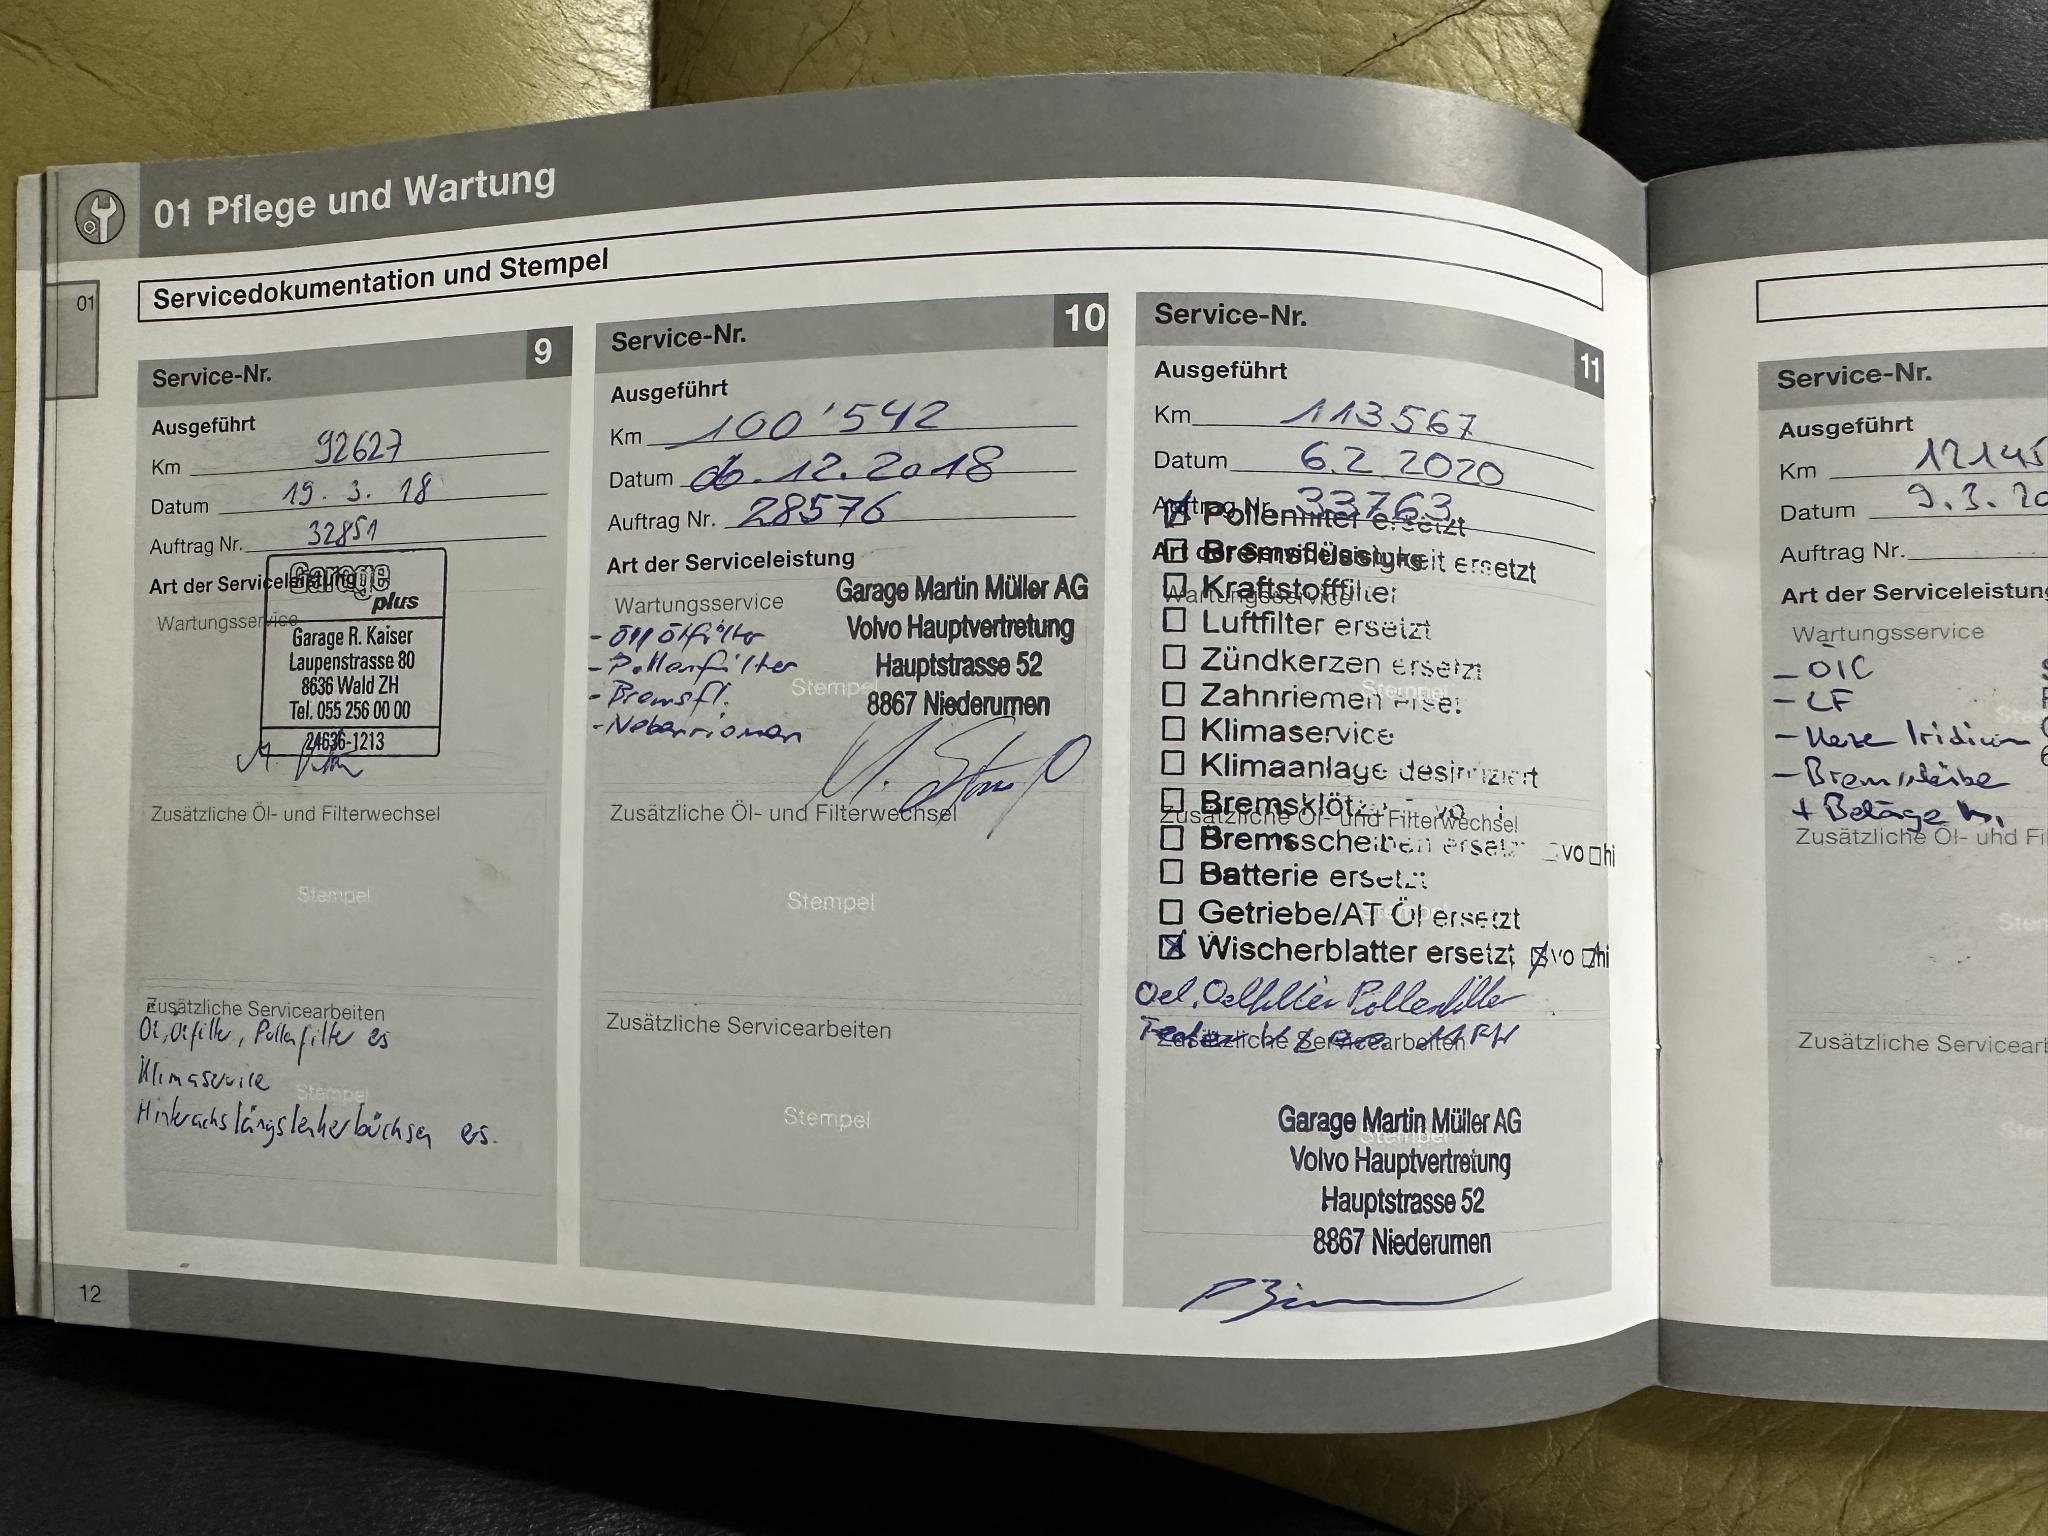 01 Pflege und Wartung
01
Servicedokumentation und Stempel
Service-Nr. 9
Ausgeführt
Km 92627
Datum 19. 3. 18
Auftrag Nr. 32851
Art der Serviceleistung
Wartungsservice
Garage
plus
Garage R. Kaiser
Laupenstrasse 80
8636 Wald ZH
Tel. 055 256 00 00
24636-1213
Zusätzliche Öl- und Filterwechsel
Stempel
Zusätzliche Servicearbeiten
Öl, Ölfilter, Pollenfilter es
Klimaservice
Stempel
Hinterachslängslenkerbüchsen es.
12
Service-Nr. 10
Ausgeführt
Km 100'542
Datum 06.12.2018
Auftrag Nr. 28576
Art der Serviceleistung
Wartungsservice
- Öl, Ölfilter
- Pollenfilter
- Bremsfl.
- Nebenriemen
Stempel
Garage Martin Müller AG
Volvo Hauptvertretung
Hauptstrasse 52
8867 Niederurnen
Zusätzliche Öl- und Filterwechsel
Stempel
Zusätzliche Servicearbeiten
Stempel
Service-Nr. 11
Ausgeführt
Km 113567
Datum 6.2 2020
Auftrag Nr. 33763
Pollenfilter ersetzt
Art der Serviceleistung
Bremsflüssigkeit ersetzt
Kraftstofffilter
Wartungsservice
Luftfilter ersetzt
Zündkerzen ersetzt
Stempel
Zahnriemen erset
Klimaservice
Klimaanlage desinfiziert
Bremsklötze vo
Zusätzliche Öl- und Filterwechsel
Bremsscheiben ersetzt vo hi
Batterie ersetzt
Stempel
Getriebe/AT Öl ersetzt
Wischerblatter ersetzt vo hi
Oel, Oelfilter Pollenfilter
Zusätzliche Servicearbeiten
Stempel
Garage Martin Müller AG
Volvo Hauptvertretung
Hauptstrasse 52
8867 Niederurnen
Service-Nr.
Ausgeführt
Km 12145
Datum 9.3.20
Auftrag Nr.
Art der Serviceleistung
Wartungsservice
- ÖIC
- LF
- Kerze Iridium
- Bremsscheibe
+ Beläge
Zusätzliche Öl- und Fil
Sten
Zusätzliche Servicearb
Ster